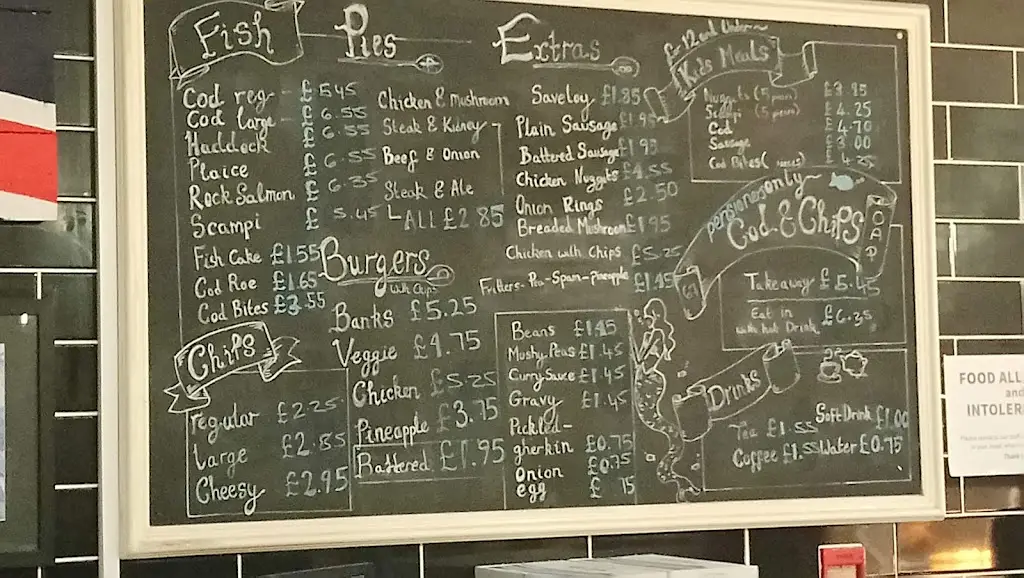 Fish
Cod reg - £5.45
Cod large - £6.55
Haddock £6.55
Plaice £6.55
Rock Salmon £6.35
Scampi £5.45
Fish Cake £1.55
Cod Roe £1.65
Cod Bites £3.55
Chips
regular £2.25
large £2.85
Cheesy £2.95
Pies
Chicken & Mushroom
Steak & Kidney
Beef & Onion
Steak & Ale
ALL £2.85
Burgers
with Chips
Banks £5.25
Veggie £4.75
Chicken £5.25
Pineapple £3.75
Battered £1.95
Extras
Saveloy £1.85
Plain Sausage £1.95
Battered Sausage £1.95
Chicken Nuggets £4.55
Onion Rings £2.50
Breaded Mushroom £1.95
Chicken with Chips £5.25
Fritters - Pea - Spam - Pineapple £1.45
Beans £1.45
Mushy Peas £1.45
Curry Sauce £1.45
Gravy £1.45
Pickled -
gherkin £0.75
Onion £0.75
egg £ 75
for 12 and Under
Kids Meals
Nuggets (5 £3.95
Scampi (5 £4.25
Cod £4.70
Sausage £3.00
Cod Bites £4.25
pensioners only
Cod & Chips
OAP
Takeaway £5.45
Eat in
with hot Drink £6.35
Drinks
Tea £1.55 Soft Drink £1.00
Coffee £1.55 Water £0.75
FOOD ALL
and
INTOLER